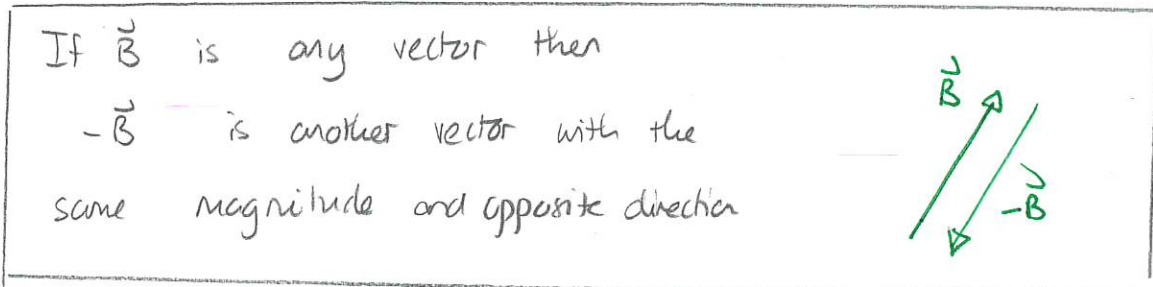 If B⃗ is any vector then
-B⃗ is another vector with the
same magnitude and opposite direction
B⃗
-B⃗